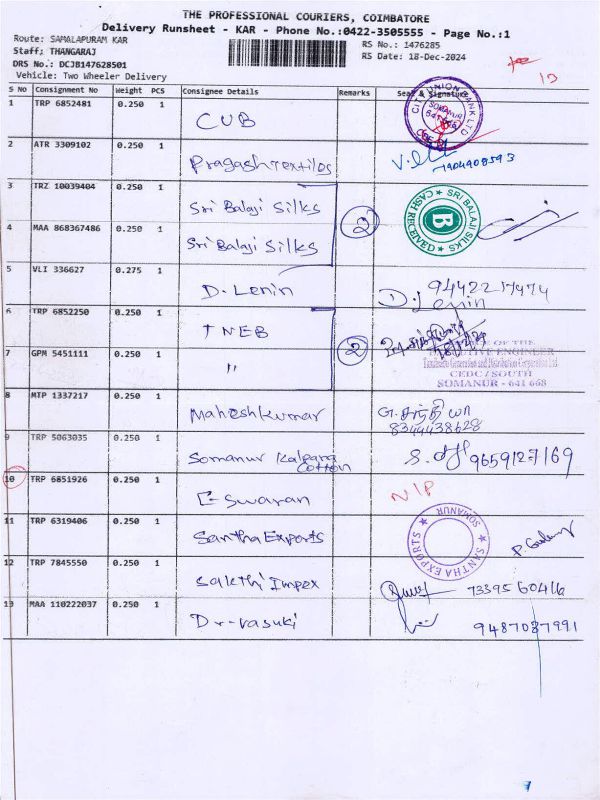 THE PROFESSIONAL COURIERS, COIMBATORE
Delivery Runsheet - KAR - Phone No.:0422-3505555 - Page No.:1
Route: SAMALAPURAM KAR
RS No.: 1476285
Staff: THANGARAJ
RS Date: 18-Dec-2024
DRS No.: DCJB147628501
Vehicle: Two Wheeler Delivery
S No Consignment No Weight PCS Consignee Details Remarks Seal & Signature
1 TRP 6852481 0.250 1 CUB CITY UNION BANK LTD SOMANUR
2 ATR 3309102 0.250 1 Pragash Textiles
3 TRZ 10039404 0.250 1 Sri Balaji Silks
2 ★ SRI BALAJI SILKS ★ CASH RECEIVED B
4 MAA 868367486 0.250 1 Sri Balaji Silks
5 VLI 336627 0.275 1 D. Lenin D. Lenin 9442217474
6 TRP 6852250 0.250 1 TNEB
2
7 GPM 5451111 0.250 1 "
OFFICE OF THE
EXECUTIVE ENGINEER
CEDC/SOUTH
SOMANUR - 641 668
8 MTP 1337217 0.250 1 Maheshkumar G. சந்தியா
8344438628
9 TRP 5063035 0.250 1 Somanur Kalpana Cotton 9659127169
10 TRP 6851926 0.250 1 Eswaran N/P
11 TRP 6319406 0.250 1 Santha Exports ★ SANTHA EXPORTS ★ SOMANUR
12 TRP 7845550 0.250 1 Sakthi Impex 7339560416
13 MAA 110222037 0.250 1 Dr-vasuki 9487087991